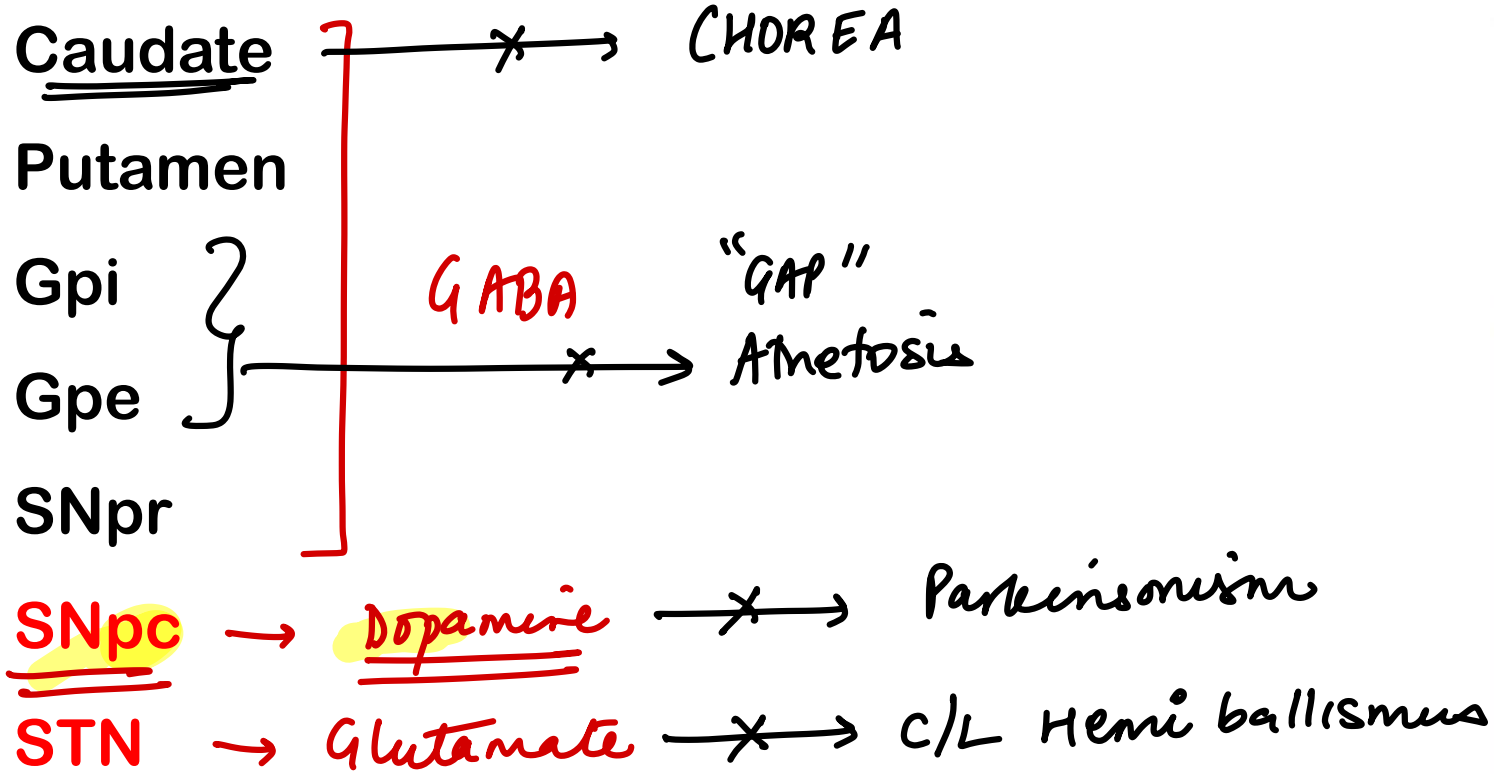 Caudate CHOREA
Putamen
Gpi GABA "GAP"
Gpe Athetosis
SNpr
SNpc → Dopamine → Parkinsonism
STN → Glutamate → C/L Hemiballismus